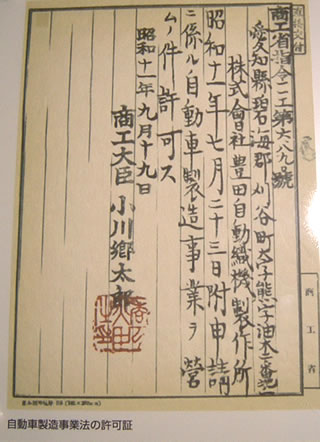 直接交付
商工省指令一一工第六八九號
愛知縣碧海郡刈谷町大字熊字
株式會社豊田自動織機製作所
昭和十一年七月二十三日附申請
ニ係ル自動車製造事業ヲ營
ムノ件許可ス
昭和十一年九月十九日
商工大臣 小川郷太郎
商工省
自動車製造事業法の許可証